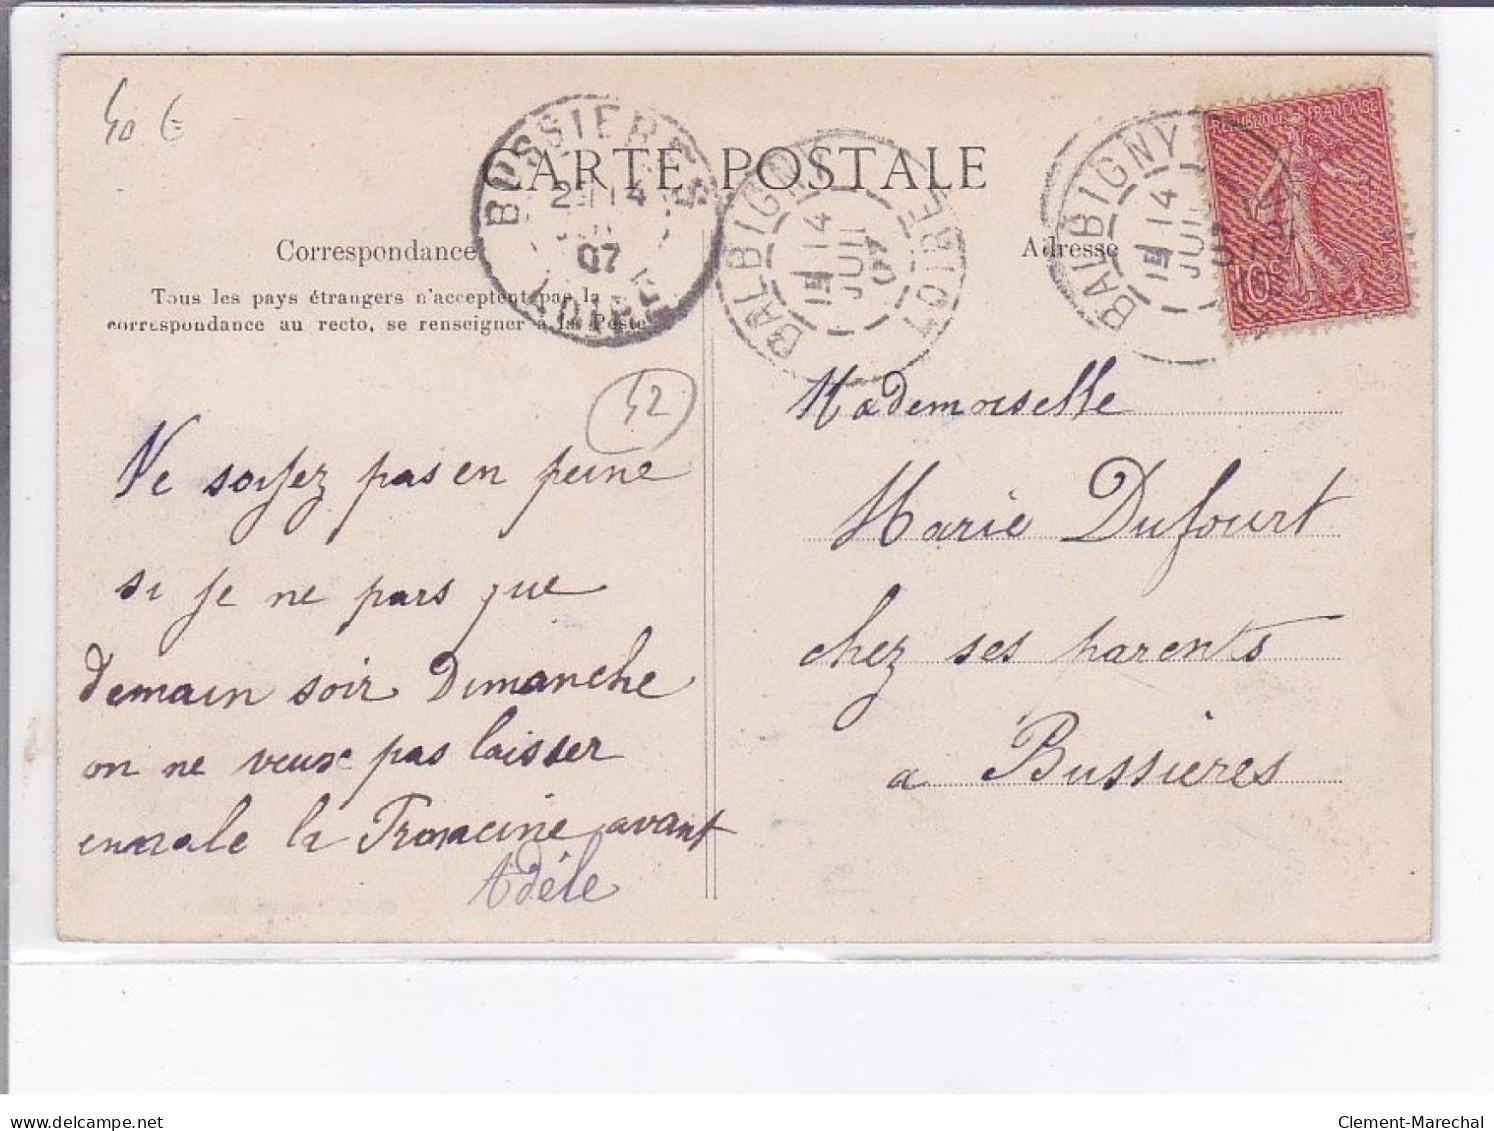 40 €
CARTE POSTALE
BUSSIERES
2E 14
07
LOIRE
BALBIGNY
1E 14
JUIL
07
LOIRE
BALBIGNY
1E 14
JUIL
07
REPUBLIQUE FRANÇAISE
10
Correspondance
Adresse
Tous les pays étrangers n'acceptent pas la
correspondance au recto, se renseigner à la Poste
42
Ne soyez pas en peine
si je ne pars que
demain soir Dimanche
on ne veux pas laisser
la avant
Adèle
Mademoiselle
Marie Dufourt
chez ses parents
a Bussieres
delcampe.net
Clement-Marechal